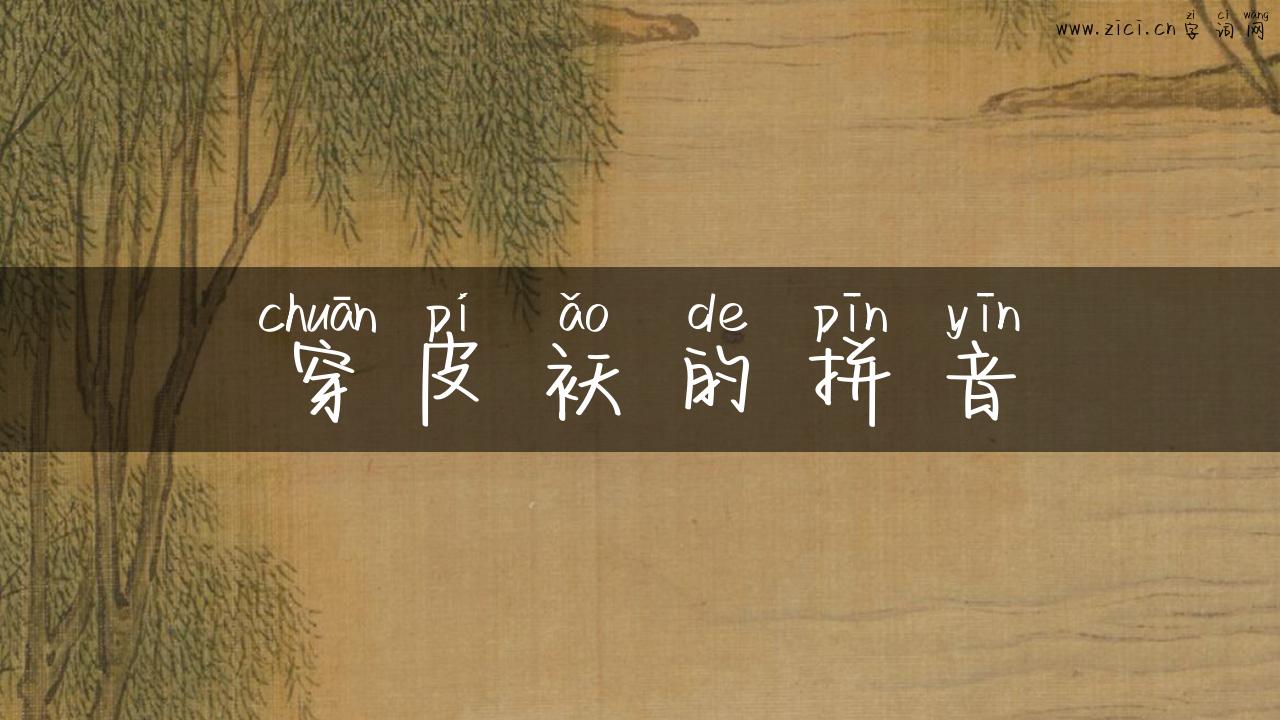 zì cí wǎng
www.zici.cn 字词网
chuān pí ǎo de pīn yīn
穿皮袄的拼音